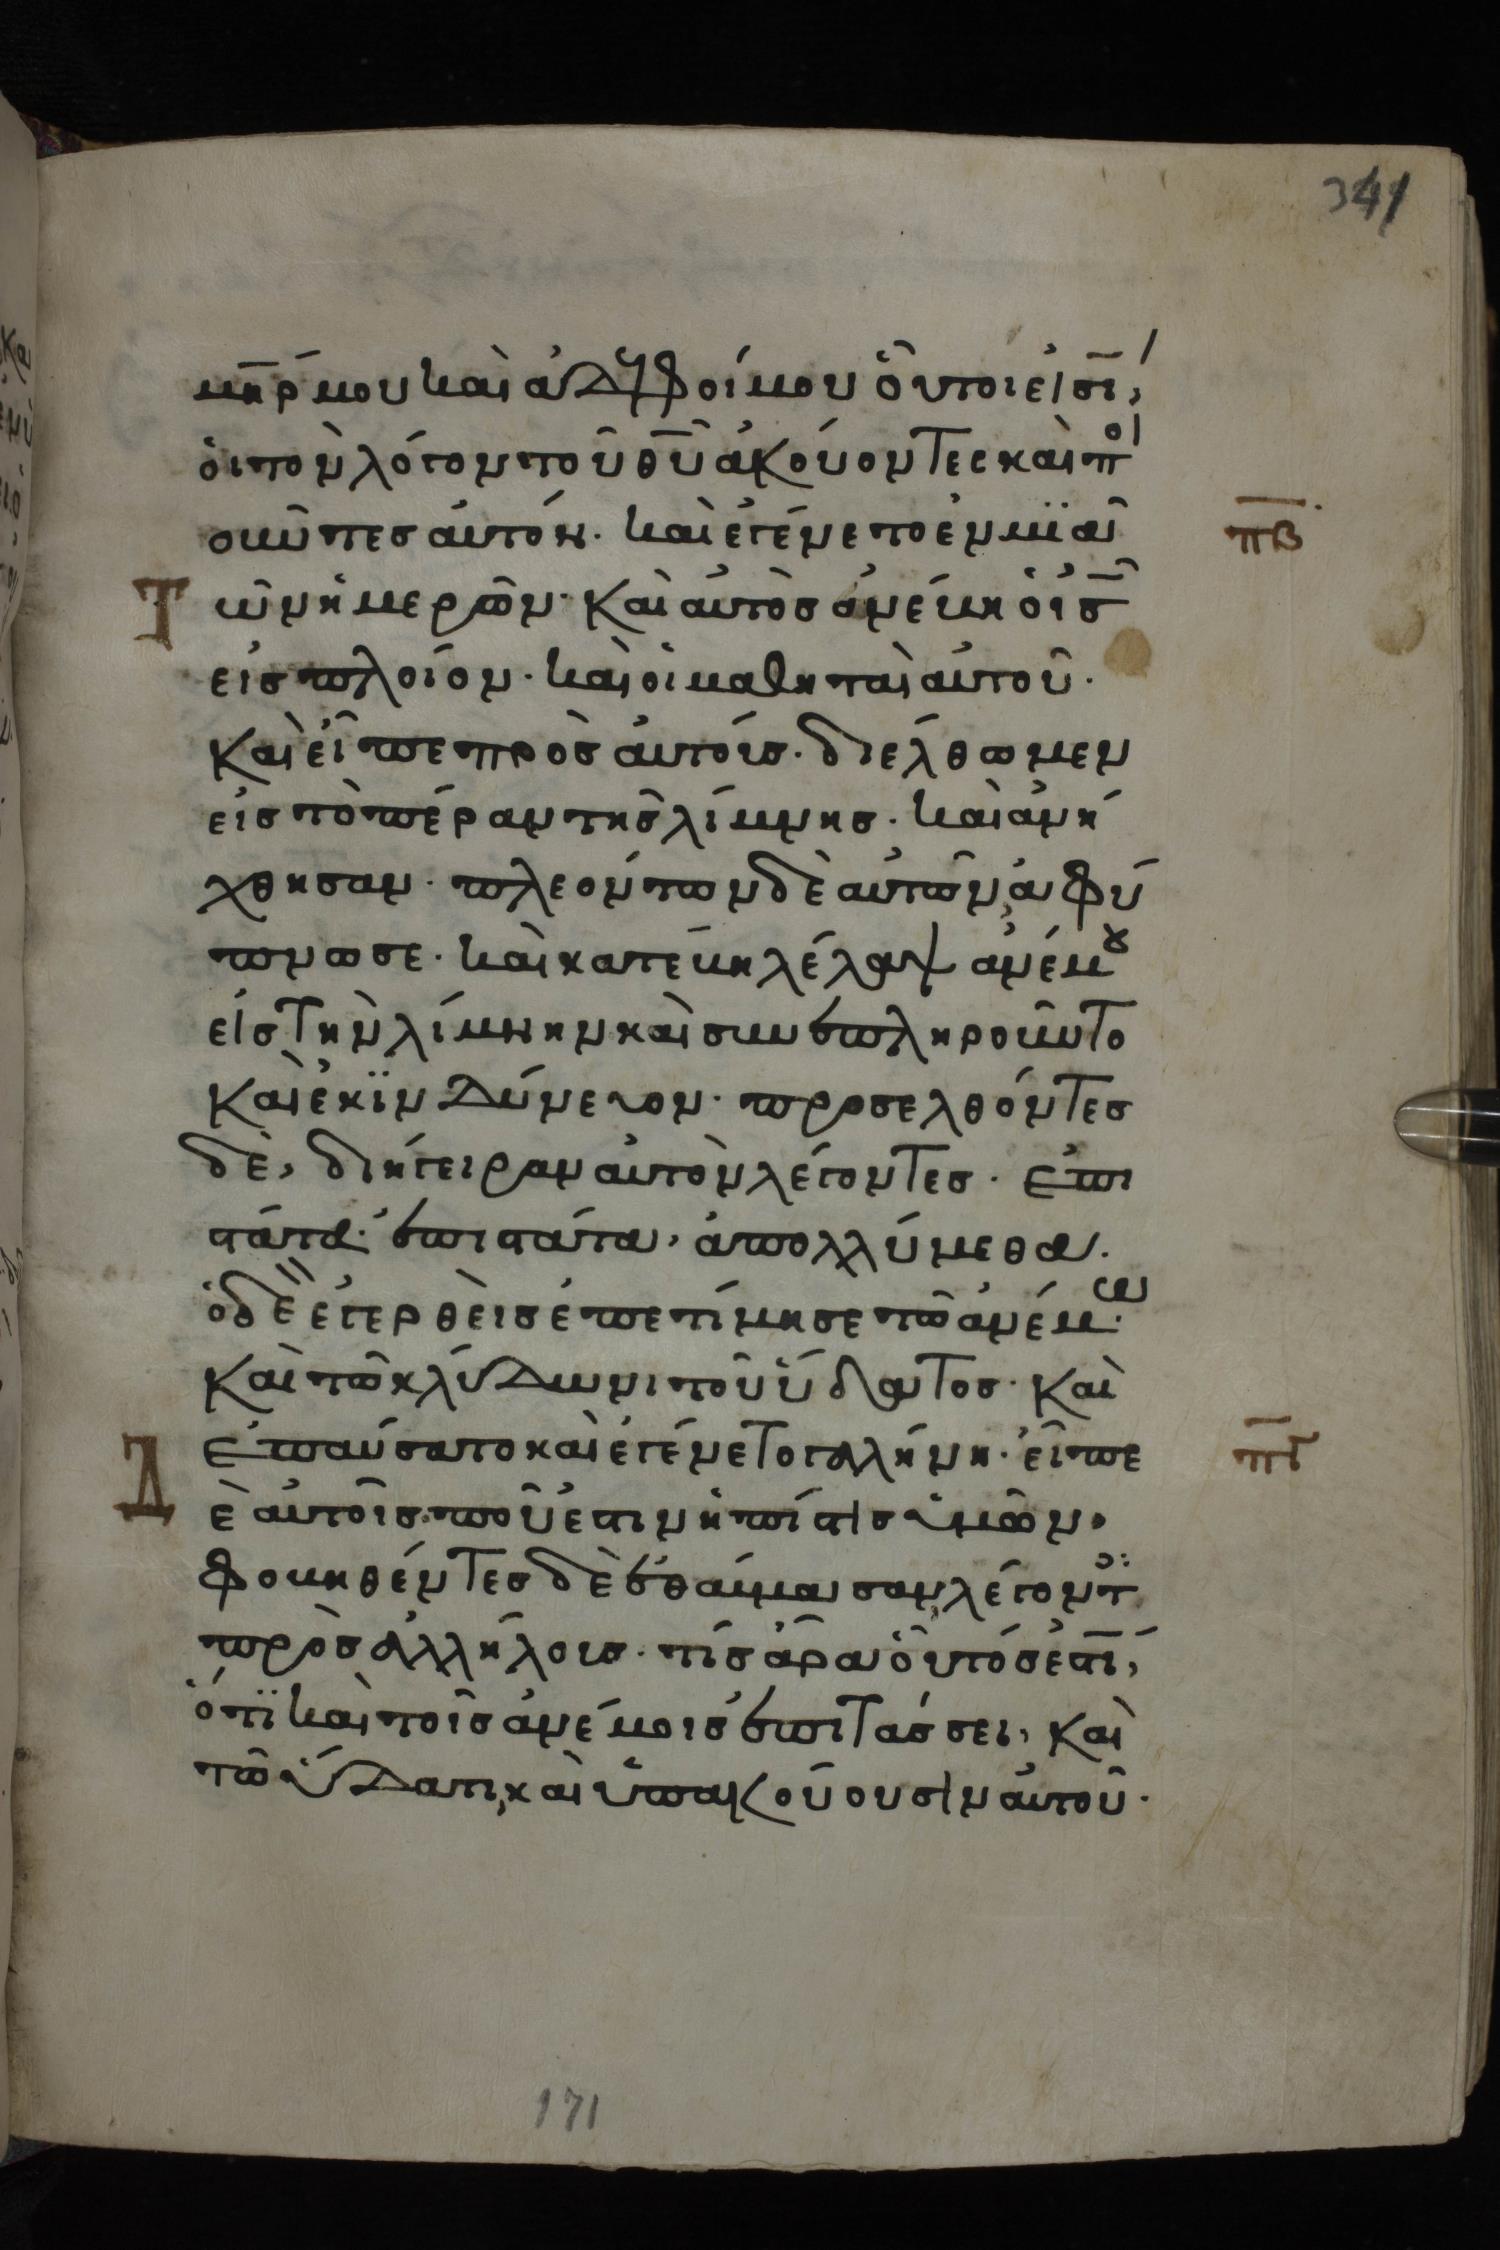 341
μηρ μου καὶ ἀδελφοί μου οὗτοι εἰσι,
οἱ τὸν λόγον τοῦ θυ ἀκούοντες καὶ ποι
οῦντες αὐτόν. καὶ ἐγένετο ἐν μιᾷ πβ
Τῶν ἡμερῶν· καὶ αὐτὸς ἀνέβη ὁ ις
εἰς πλοῖον. καὶ οἱ μαθηταὶ αὐτοῦ.
καὶ εἶπε πρὸς αὐτούς. διέλθωμεν
εἰς τὸ πέραν τῆς λίμνης. καὶ ἀνή
χθησαν. πλεόντων δὲ αὐτῶν, ἀφύ
πνωσε. καὶ κατέβη λέλαψ ἀνέμου
εἰς τὴν λίμνην καὶ συνεπληροῦντο
καὶ ἐκινδύνευον. προσελθόντες
δὲ, διήγειραν αὐτὸν λέγοντες. ἐπι
στάτα. ἐπιστάτα, ἀπολλύμεθα.
ὁ δὲ ἐγερθεὶς ἐπετίμησε τῷ ἀνέμω.
καὶ τῷ κλύδωνι τοῦ ὕδατος. καὶ
ἐπαύσατο καὶ ἐγένετο γαλήνη. εἶπε πγ
Δὲ αὐτοῖς. ποῦ ἐστιν ἡ πίστις ὑμῶν,
φοβηθέντες δὲ ἐθαύμασαν, λέγοντες
πρὸς ἀλλήλους. τίς ἄρα οὗτός ἐστι,
ὅτι καὶ τοῖς ἀνέμοις ἐπιτάσσει, καὶ
τῷ ὕδατι, καὶ ὑπακούουσιν αὐτοῦ.
171